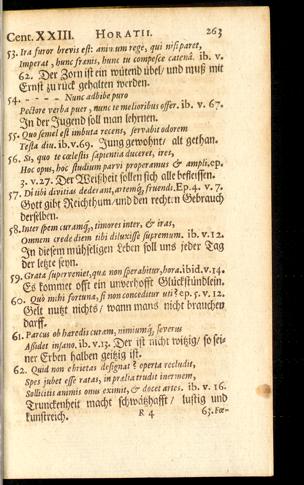 Cent. XXIII. HORATII. 263
53. Ira furor brevis est: animum rege, qui nisi paret,
Imperat, hunc frænis, hunc tu compesce catenâ. ib. v.
62. Der Zorn ist ein wütend übel/ und muß mit
Ernst zu rück gehalten werden.
54. - - - - Nunc adbibe puro
Pectore verba puer, nunc te melioribus offer. ib. v. 67.
In der Jugend soll man lehrnen.
55. Quo semel est imbuta recens, servabit odorem
Testa diu. ib. v. 69. Jung gewohnt/ alt gethan.
56. Si, quo te cælestis sapientia duceret, ires,
Hoc opus, hoc studium parvi properemus & ampli, ep.
3. v. 27. Der Weißheit sollen sich alle befleissen.
57. Dî tibi divitias dederant, artemq, fruendi. Ep. 4. v. 7.
Gott gibt Reichthum/ und den rechten Gebrauch
derselben.
58. Inter spem curamq, timores inter, & iras,
Omnem crede diem tibi diluxisse supremum. ib. v. 12.
In diesem mühseligen Leben soll uns jeder Tag
der letzte seyn.
59. Grata superveniet, quæ non sperabitur, hora. ibid. v. 14.
Es kommet offt ein unverhofft Glückstündlein.
60. Quò mihi fortuna, si non conceditur uti? ep. 5. v. 12.
Gelt nutzt nichts/ wann mans nicht brauchen
darff.
61. Parcus ob hæredis curam, nimiumq, severus
Assidet insano. ib. v. 13. Der ist nicht witzig/ so sei-
ner Erben halben geitzig ist.
62. Quid non ebrietas designat? operta recludit,
Spes jubet esse ratas, in prælia trudit inermem,
Sollicitis animis onus eximit, & docet artes. ib. v. 16.
Trunckenheit macht schwätzhafft/ lustig und
kunstreich.
R 4 63. Fœ-